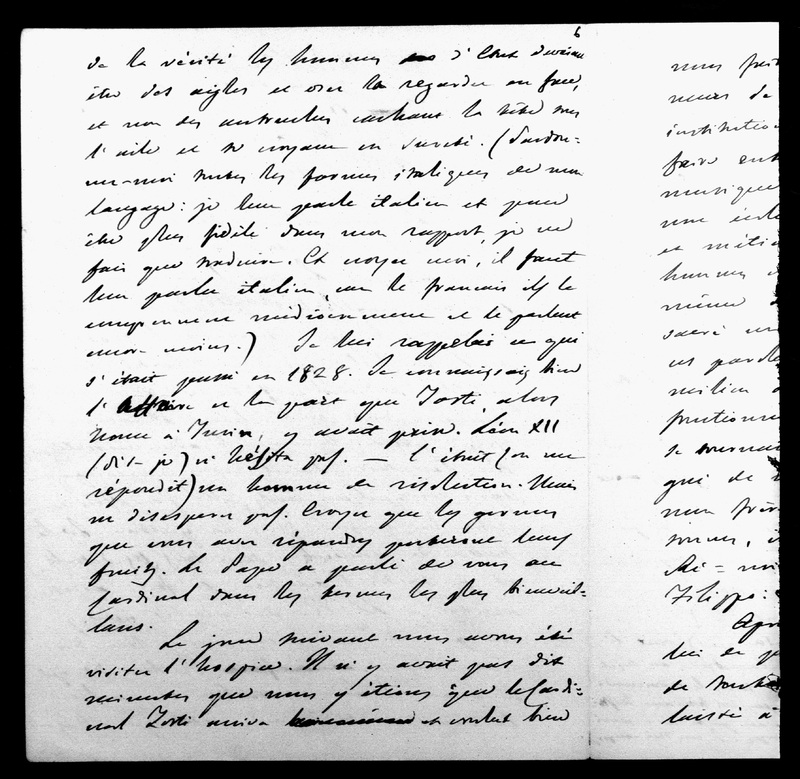 6
de la vérité les hommes d'Etat devraient
être des aigles et oser la regarder en face,
et non des autruches cachant la tête sous
l'aile et se croyant en sureté. (Pardon-
nez-moi toutes les formes italiques de mon
langage: je leur parle italien et pour
être plus fidèle dans mon rapport, je ne
fais que traduire. Et croyez moi, il faut
leur parler italien, car le français ils le
comprennent médiocrement et le parlent
encore moins.) Je lui rappelais ce qui
s'était passé en 1828. Je connaissais bien
l'affaire et la part que Tosti, alors
Nonce à Turin, y avait prise. Léon XII
(dis-je) n'hésita pas. — C'était (on me
répondit) un homme de résolution. Mais
ne désespérez pas. Croyez que les germes
que vous avez répandus porteront leurs
fruits. Le Pape a parlé de vous au
Cardinal dans les termes les plus bienveil-
lans.
Le jour suivant nous avons été
visiter l'hospice. Il n'y avait pas dix
minutes que nous y étions que le Cardi-
nal Tosti arriva et voulut bien
nous
de
institution
faire
musique
une
et
hommes
même
sacré
et
milieu
se
qui de
mon
Filippo:
Apr
lui
de
laissé à